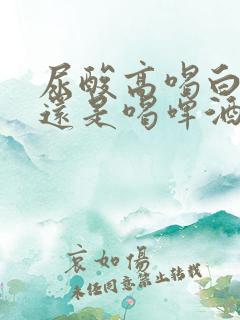 尿酸高喝白
還是喝啤酒
哀如傷
未经同意禁止转载